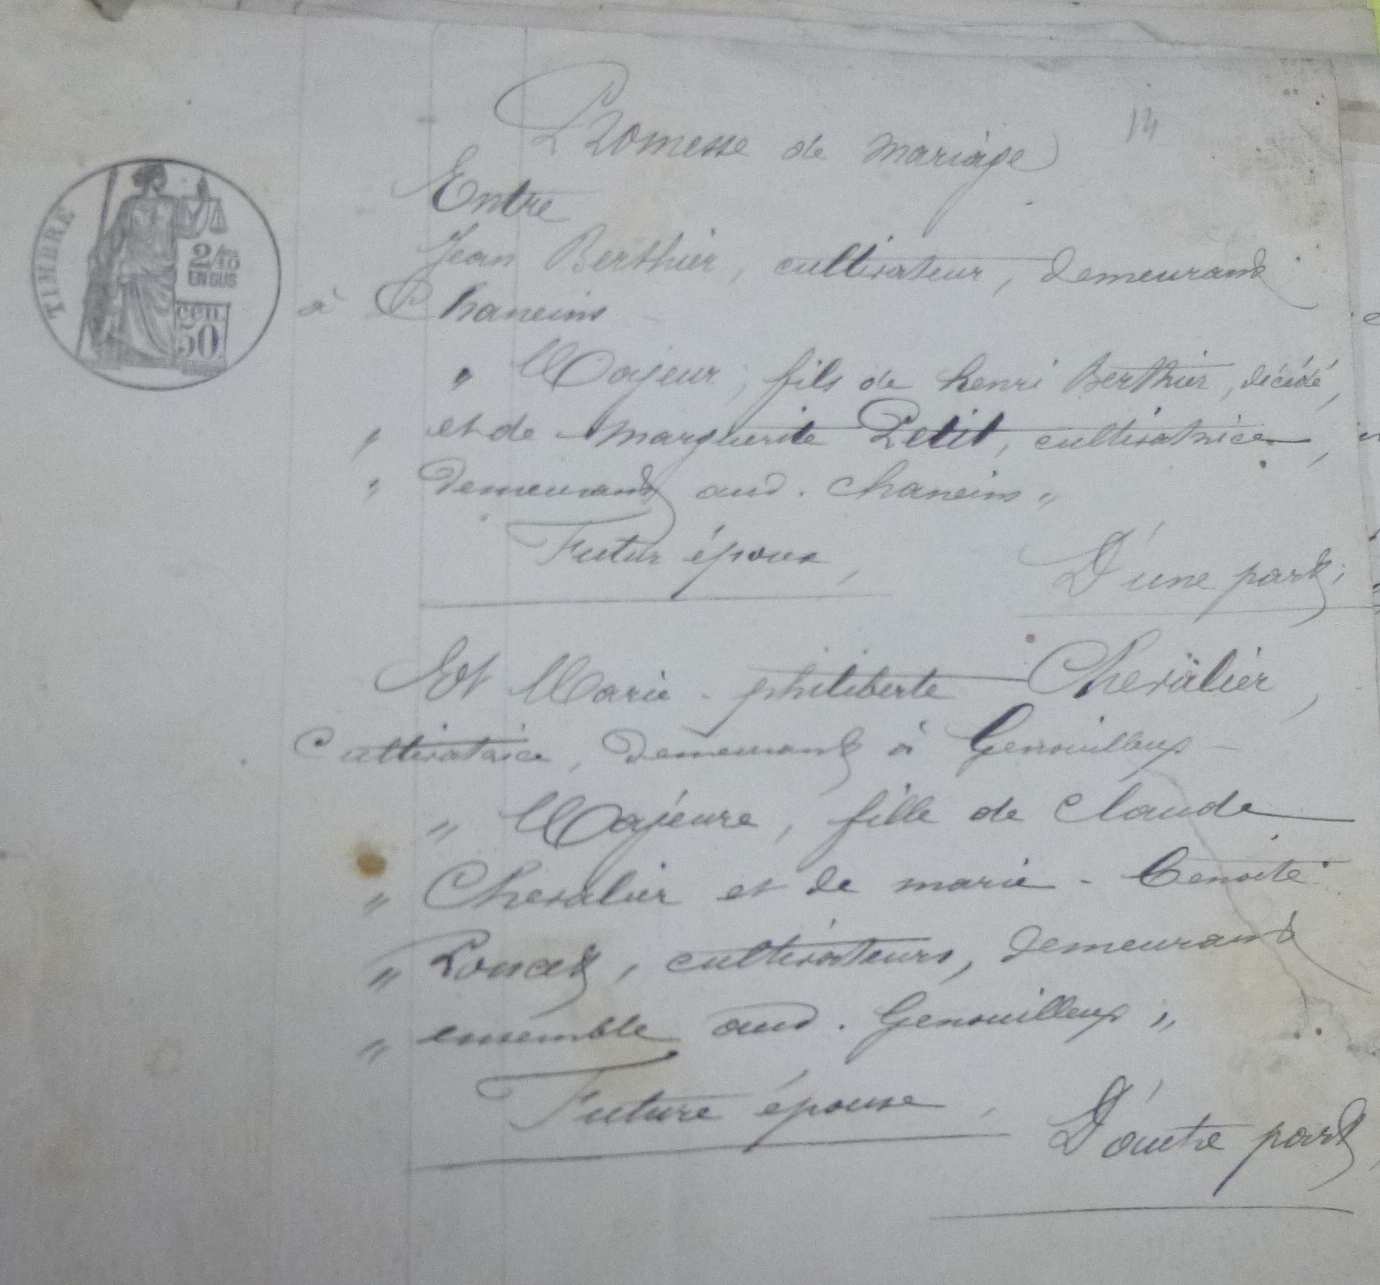 14
Promesse de mariage
Entre
Jean Berthier, cultivateur, demeurant
à Chaneins
" Majeur, fils de henri Berthier, décédé,
" et de marguerite Petit, cultivatrice,
" demeurant aud. Chaneins "
Futur époux, D'une part;
Et Marie - philiberte Chevalier,
Cultivatrice, demeurant à Genouilleux
" Majeure, fille de Claude
" Chevalier et de marie - benoite
" cultivateurs, demeurant
" ensemble aud. Genouilleux "
Future épouse, D'autre part,
TIMBRE
2/10
EN SUS
CEN.
50